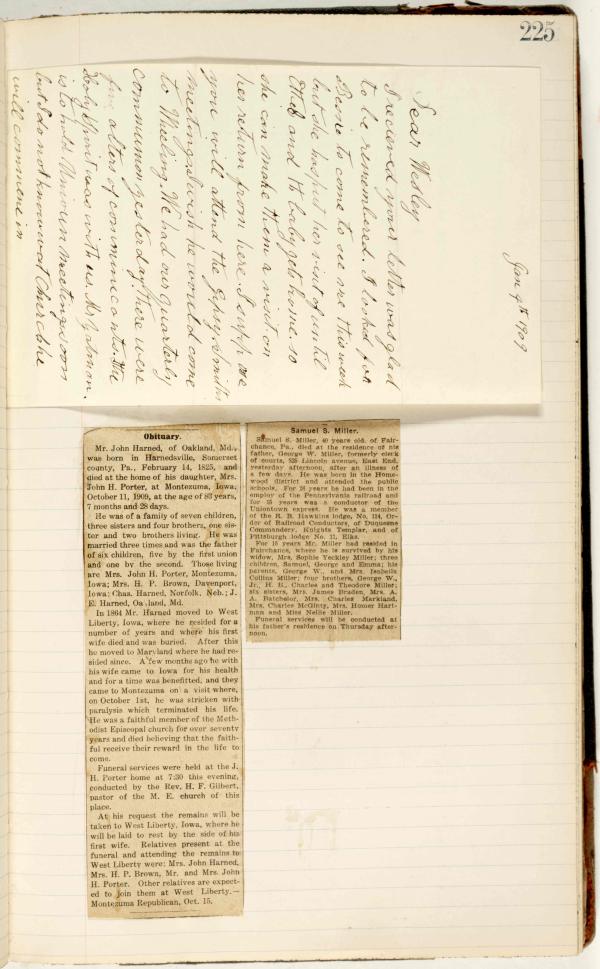 225
Jan 9th 1909
Dear Wesley
I recieved your letter was glad
to be remembered. I looked for
Bessie to come to see me this week
but she has put her visit of until
and th baby get home. so
she can make them a visit on
her return from here. I suppose
you will attend the Gipsy Smith
meetings. I wish he would come
to Wheling. We had our quarterly
communion yesterday. there were
five alters of comminecants. the
Holy Spirit was with us. Mr
is to hold Union meetings soon
but I do not know wat Church he
will commence in
Obituary.
Mr. John Harned, of Oakland, Md.,
was born in Harnedsville, Somerset
county, Pa., February 14, 1825, and
died at the home of his daughter, Mrs.
John H. Porter, at Montezuma, Iowa,
October 11, 1909, at the age of 83 years,
7 months and 28 days.
He was of a family of seven children,
three sisters and four brothers, one sis-
ter and two brothers living. He was
married three times and was the father
of six children, five by the first union
and one by the second. Those living
are Mrs. John H. Porter, Montezuma,
Iowa; Mrs. H. P. Brown, Davenport,
Iowa; Chas. Harned, Norfolk, Neb.; J.
E. Harned, Oakland, Md.
In 1864 Mr. Harned moved to West
Liberty, Iowa, where he resided for a
number of years and where his first
wife died and was buried. After this
he moved to Maryland where he had re-
sided since. A few months ago he with
his wife came to Iowa for his health
and for a time was benefitted, and they
came to Montezuma on a visit where,
on October 1st, he was stricken with
paralysis which terminated his life.
He was a faithful member of the Meth-
odist Episcopal church for over seventy
years and died believing that the faith-
ful receive their reward in the life to
come.
Funeral services were held at the J.
H. Porter home at 7:30 this evening,
conducted by the Rev. H. F. Gilbert,
pastor of the M. E. church of this
place.
At his request the remains will be
taken to West Liberty, Iowa, where he
will be laid to rest by the side of his
first wife. Relatives present at the
funeral and attending the remains to
West Liberty were: Mrs. John Harned,
Mrs. H. P. Brown, Mr. and Mrs. John
H. Porter. Other relatives are expect-
ed to join them at West Liberty.—
Montezuma Republican, Oct. 15.
Samuel S. Miller.
Samuel S. Miller, 40 years old, of Fair-
chance, Pa., died at the residence of his
father, George W. Miller, formerly clerk
of courts, 525 Lincoln avenue, East End,
yesterday afternoon, after an illness of
a few days. He was born in the Home-
wood district and attended the public
schools. For 26 years he had been in the
employ of the Pennsylvania railroad and
for 15 years was a conductor of the
Uniontown express. He was a member
of the R. B. Hawkins lodge, No. 114, Or-
der of Railroad Conductors, of Duquesne
Commandery, Knights Templar, and of
Pittsburgh lodge No. 11, Elks.
For 15 years Mr. Miller had resided in
Fairchance, where he is survived by his
widow, Mrs. Sophie Yeckley Miller; three
children, Samuel, George and Emma; his
parents, George W., and Mrs. Isabella
Collins Miller; four brothers, George W.,
Jr., H. B., Charles and Theodore Miller;
six sisters, Mrs. James Braden, Mrs. A.
A. Batchelor, Mrs. Charles Markland,
Mrs. Charles McGinty, Mrs. Homer Hart-
man and Miss Nellie Miller.
Funeral services will be conducted at
his father's residence on Thursday after-
noon.